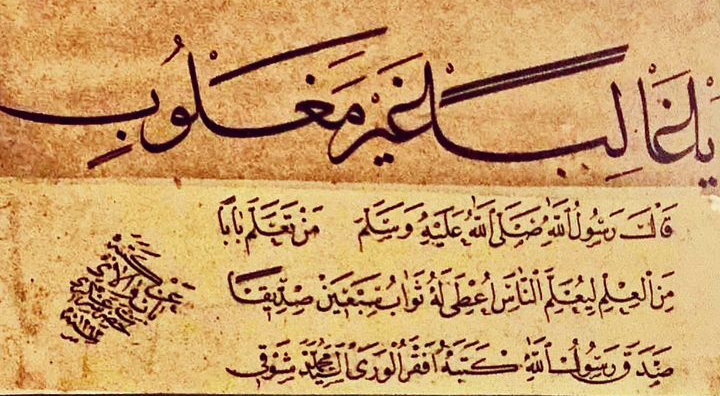 يَا غَالِبًا غَيْرَ مَغْلُوبِ
قَالَ رَسُولُ اللّٰهِ صَلَّى اللّٰهُ عَلَيْهِ وَسَلَّمَ مَنْ تَعَلَّمَ بَابًا
مِنَ الْعِلْمِ لِيُعَلِّمَ النَّاسَ اُعْطِىَ لَهُ ثَوَابُ سَبْعِينَ صِدِّيقًا
صَدَقَ رَسُولُ اللّٰهِ كَتَبَهُ اَفْقَرُ الْوَرَى السَّيِّد مُحَمَّد شَوْقِى